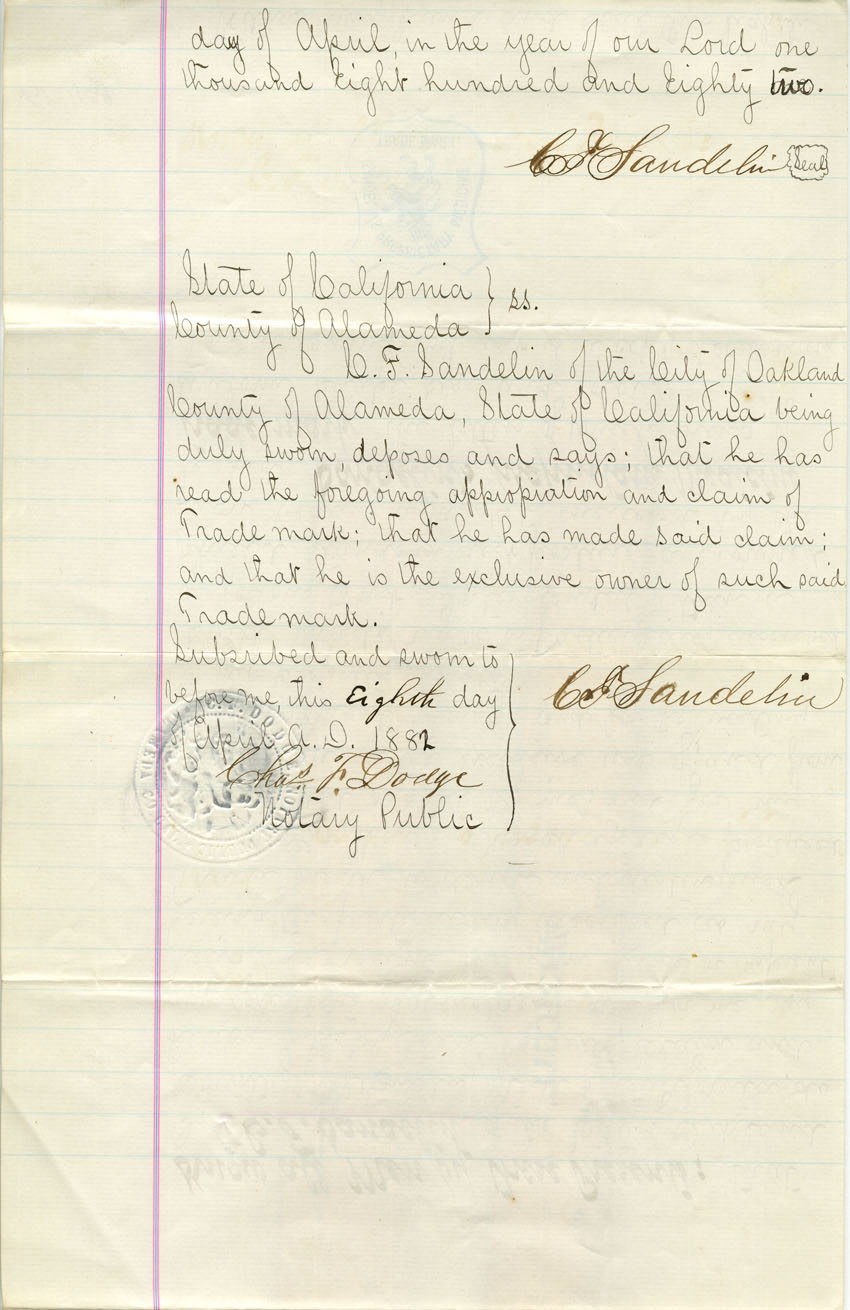 day of April, in the year of our Lord one
thousand Eight hundred and Eighty two.
C F Sandelin Seal
State of California } ss.
County of Alameda
C. F. Sandelin of the City of Oakland
County of Alameda, State of California being
duly sworn, deposes and says; that he has
read the foregoing appropiation and claim of
Trade mark; that he has made said claim;
and that he is the exclusive owner of such said
Trade mark.
Subsribed and sworn to
before me, this Eighth day
of April A.D. 1882
C F Sandelin
Chas. F. Dodge
Notary Public